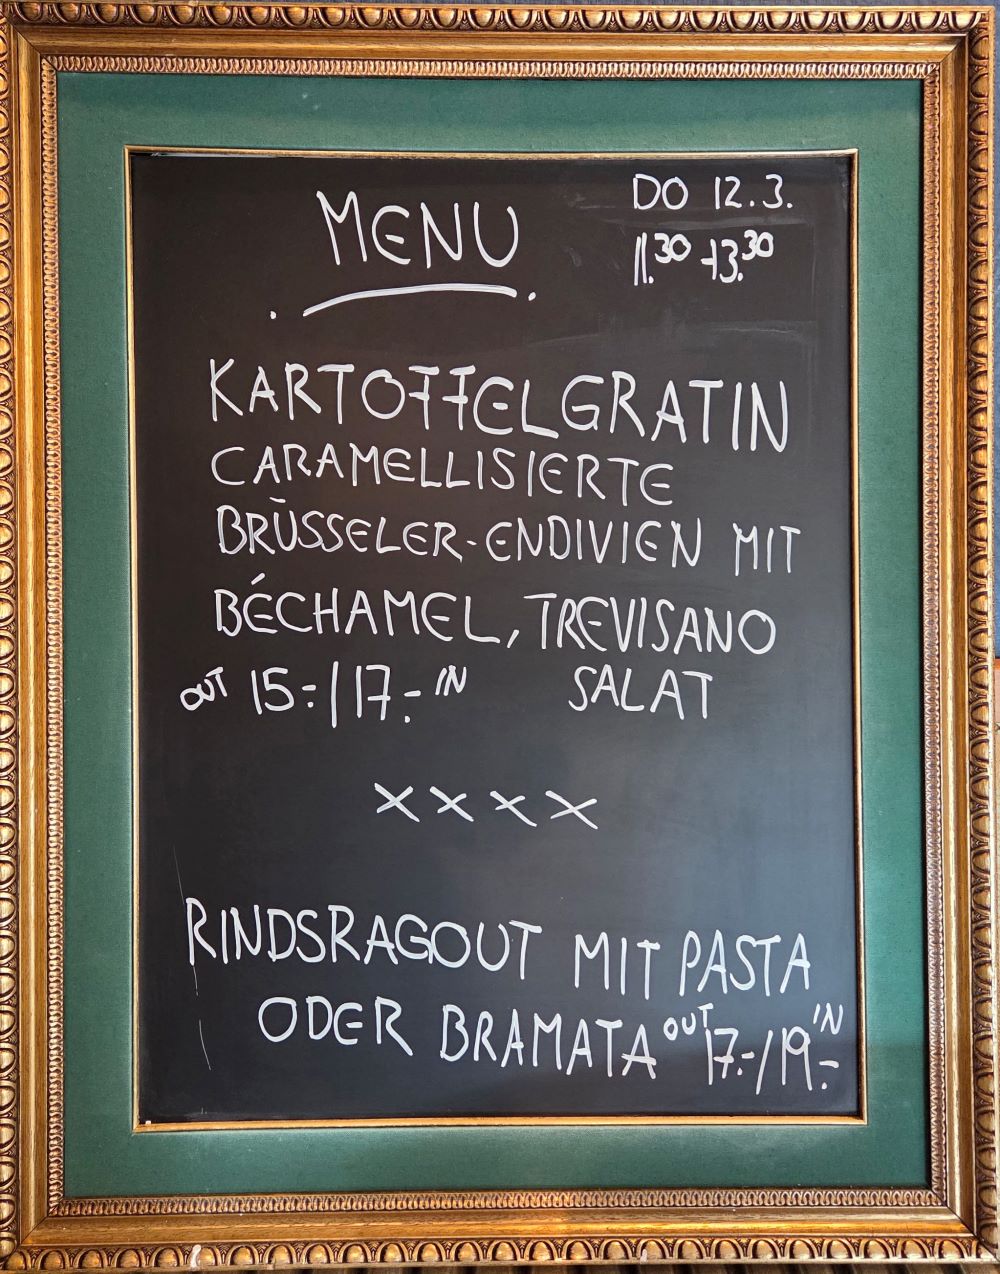 MENU
DO 12.3.
11.30 - 13.30
KARTOFFELGRATIN
CARAMELLISIERTE
BRÜSSELER-ENDIVIEN MIT
BÉCHAMEL, TREVISANO
SALAT
OUT 15.-/17.- IN
XXXX
RINDSRAGOUT MIT PASTA
ODER BRAMATA OUT 17.-/19.- IN